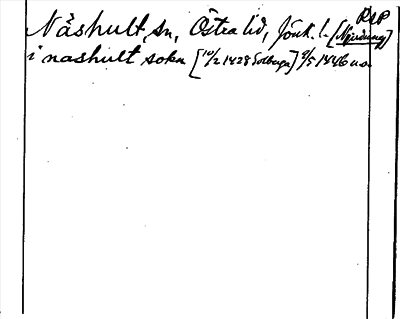 RAP
Näshult, sn, Östra hd, Jönk. l. [Njudung]
i nashult sokn [10/2 1428 Solberga] 9/5 1446 u.o.